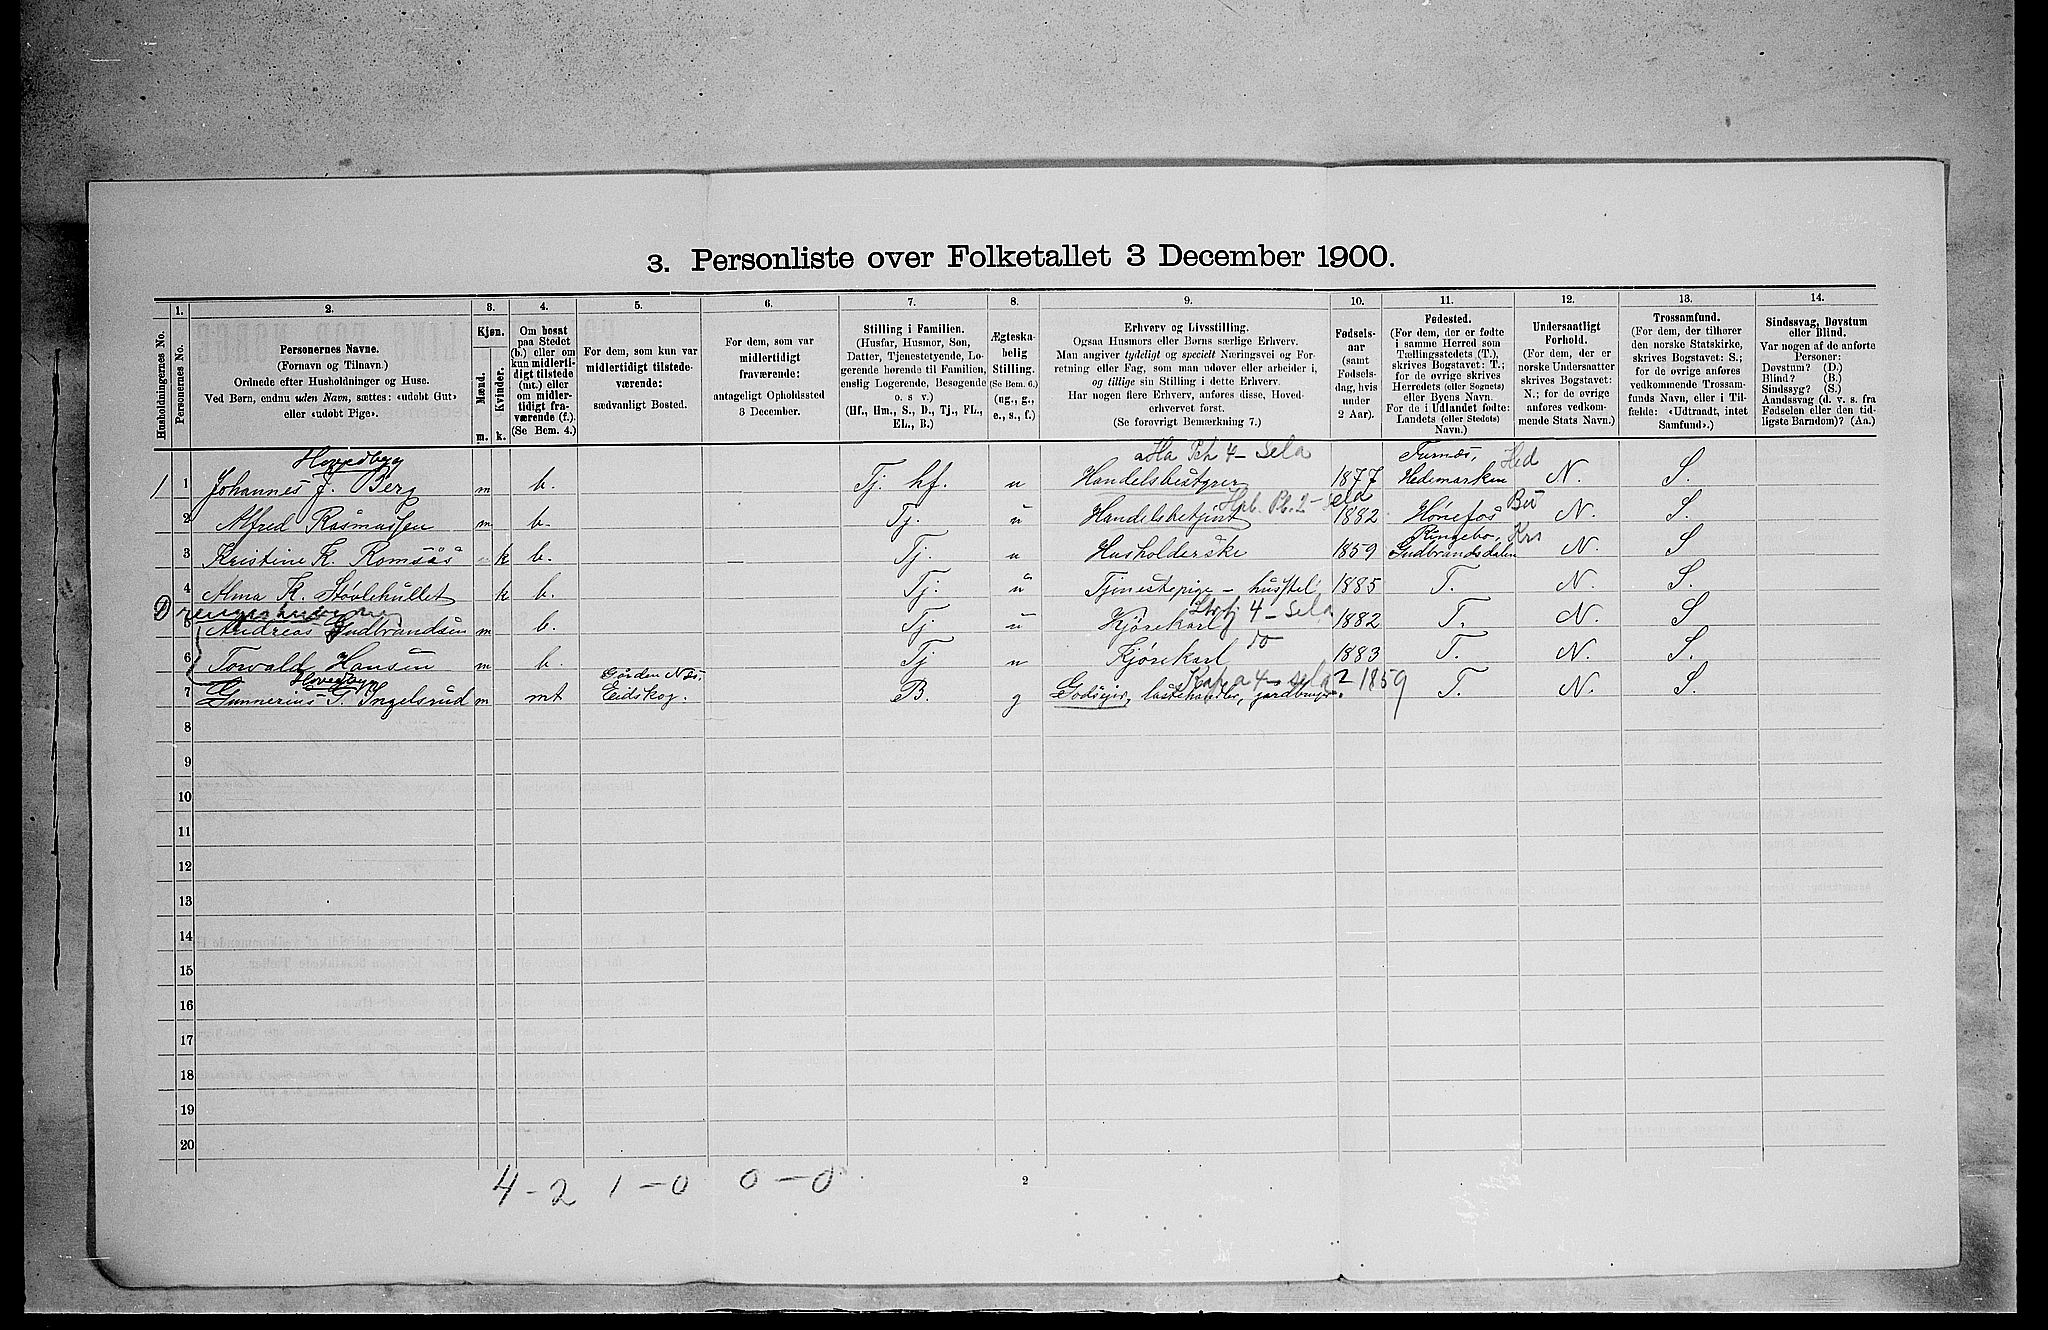 3. Personliste over Folketallet 3 December 1900.
1. 2. 3. 4. 5. 6. 7. 8. 9. 10. 11. 12. 13. 14.
Husholdningernes No.
Personernes No.
Personernes Navne.
(Fornavn og Tilnavn.)
Ordnede efter Husholdninger og Huse.
Ved Børn, endnu uden Navn, sættes: «udøbt Gut»
eller «udøbt Pige».
Kjøn.
Mænd.
Kvinder.
m. k.
Om bosat
paa Stedet
(b.) eller om
kun midlerti-
digt tilstede
(mt.) eller
om midler-
tidigt fra-
værende (f.).
(Se Bem. 4.)
For dem, som kun var
midlertidigt tilstede-
værende:
sædvanligt Bosted.
For dem, som var
midlertidigt
fraværende:
antageligt Opholdssted
3 December.
Stilling i Familien.
(Husfar, Husmor, Søn,
Datter, Tjenestetyende, Lo-
gerende hørende til Familien,
enslig Logerende, Besøgende
o. s v.)
(Hf., Hm., S., D., Tj., FL.,
EL., B.)
Ægteska-
belig
Stilling.
(Se Bem. 6.)
(ug., g.,
e., s., f.)
Erhverv og Livsstilling.
Ogsaa Husmors eller Børns særlige Erhverv.
Man angiver tydeligt og specielt Næringsvei og For-
retning eller Fag, som man udøver eller arbeider i,
og tillige sin Stilling i dette Erhverv.
Har nogen flere Erhverv, anføres disse, Hoved-
erhvervet først.
(Se forøvrigt Bemærkning 7.)
Fødsels-
aar
(samt
Fødsels-
dag, hvis
under
2 Aar).
Fødested.
(For dem, der er fødte
i samme Herred som
Tællingsstedets (T.),
skrives Bogstavet: T.;
for de øvrige skrives
Herredets (eller Sognets)
eller Byens Navn.
For de i Udlandet fødte:
Landets (eller Stedets)
Navn.)
Undersaatligt
Forhold.
(For dem, der er
norske Undersaatter
skrives Bogstavet:
N.; for de øvrige
anføres vedkom-
mende Stats Navn.)
Trossamfund.
(For dem, der tilhører
den norske Statskirke,
skrives Bogstavet: S.;
for de øvrige anføres
vedkommende Trossam-
funds Navn, eller i Til-
fælde: «Udtraadt, intet
Samfund».)
Sindssvag, Døvstum
eller Blind.
Var nogen af de anførte
Personer:
Døvstum? (D.)
Blind? (B.)
Sindssyg? (S.)
Aandssvag (d. v. s. fra
Fødselen eller den tid-
ligste Barndom)? (Aa.)
Hovedbyg
1 1 Johannes J. Berg m b. Tj. hf. u Handelsbestyrer 1877 Furnæs, Hedemarken Hed N. S.
2 Alfred Rasmussen m b. Tj. u Handelsbetjent 1882 Hønefos Bu N. S.
3 Kristine K. Romsås k b. Tj. u Husholderske 1859 Ringebo, Gudbrandsdalen Krs N. S
4 Alma K. Støvlehullet k b. Tj. u Tjenestepige – husstel 1885 T. N. S.
5 Andreas Gudbrandsen m b. Tj. u Kjørekarl 1882 T. N. S
6 Torvald Hansen m b. Tj u Kjørekarl do 1883 T. N. S.
Hovedbyg
7 Gunnerius T. Ingelsrud m mt Gården Næs, Eidskog. B. g Godseier, lasthandler, gardbruger. 1859 T. N. S.
8
9
10
11
12
13
14
15
16
17
18
19
20
4 – 2 1 – 0 0 – 0
2